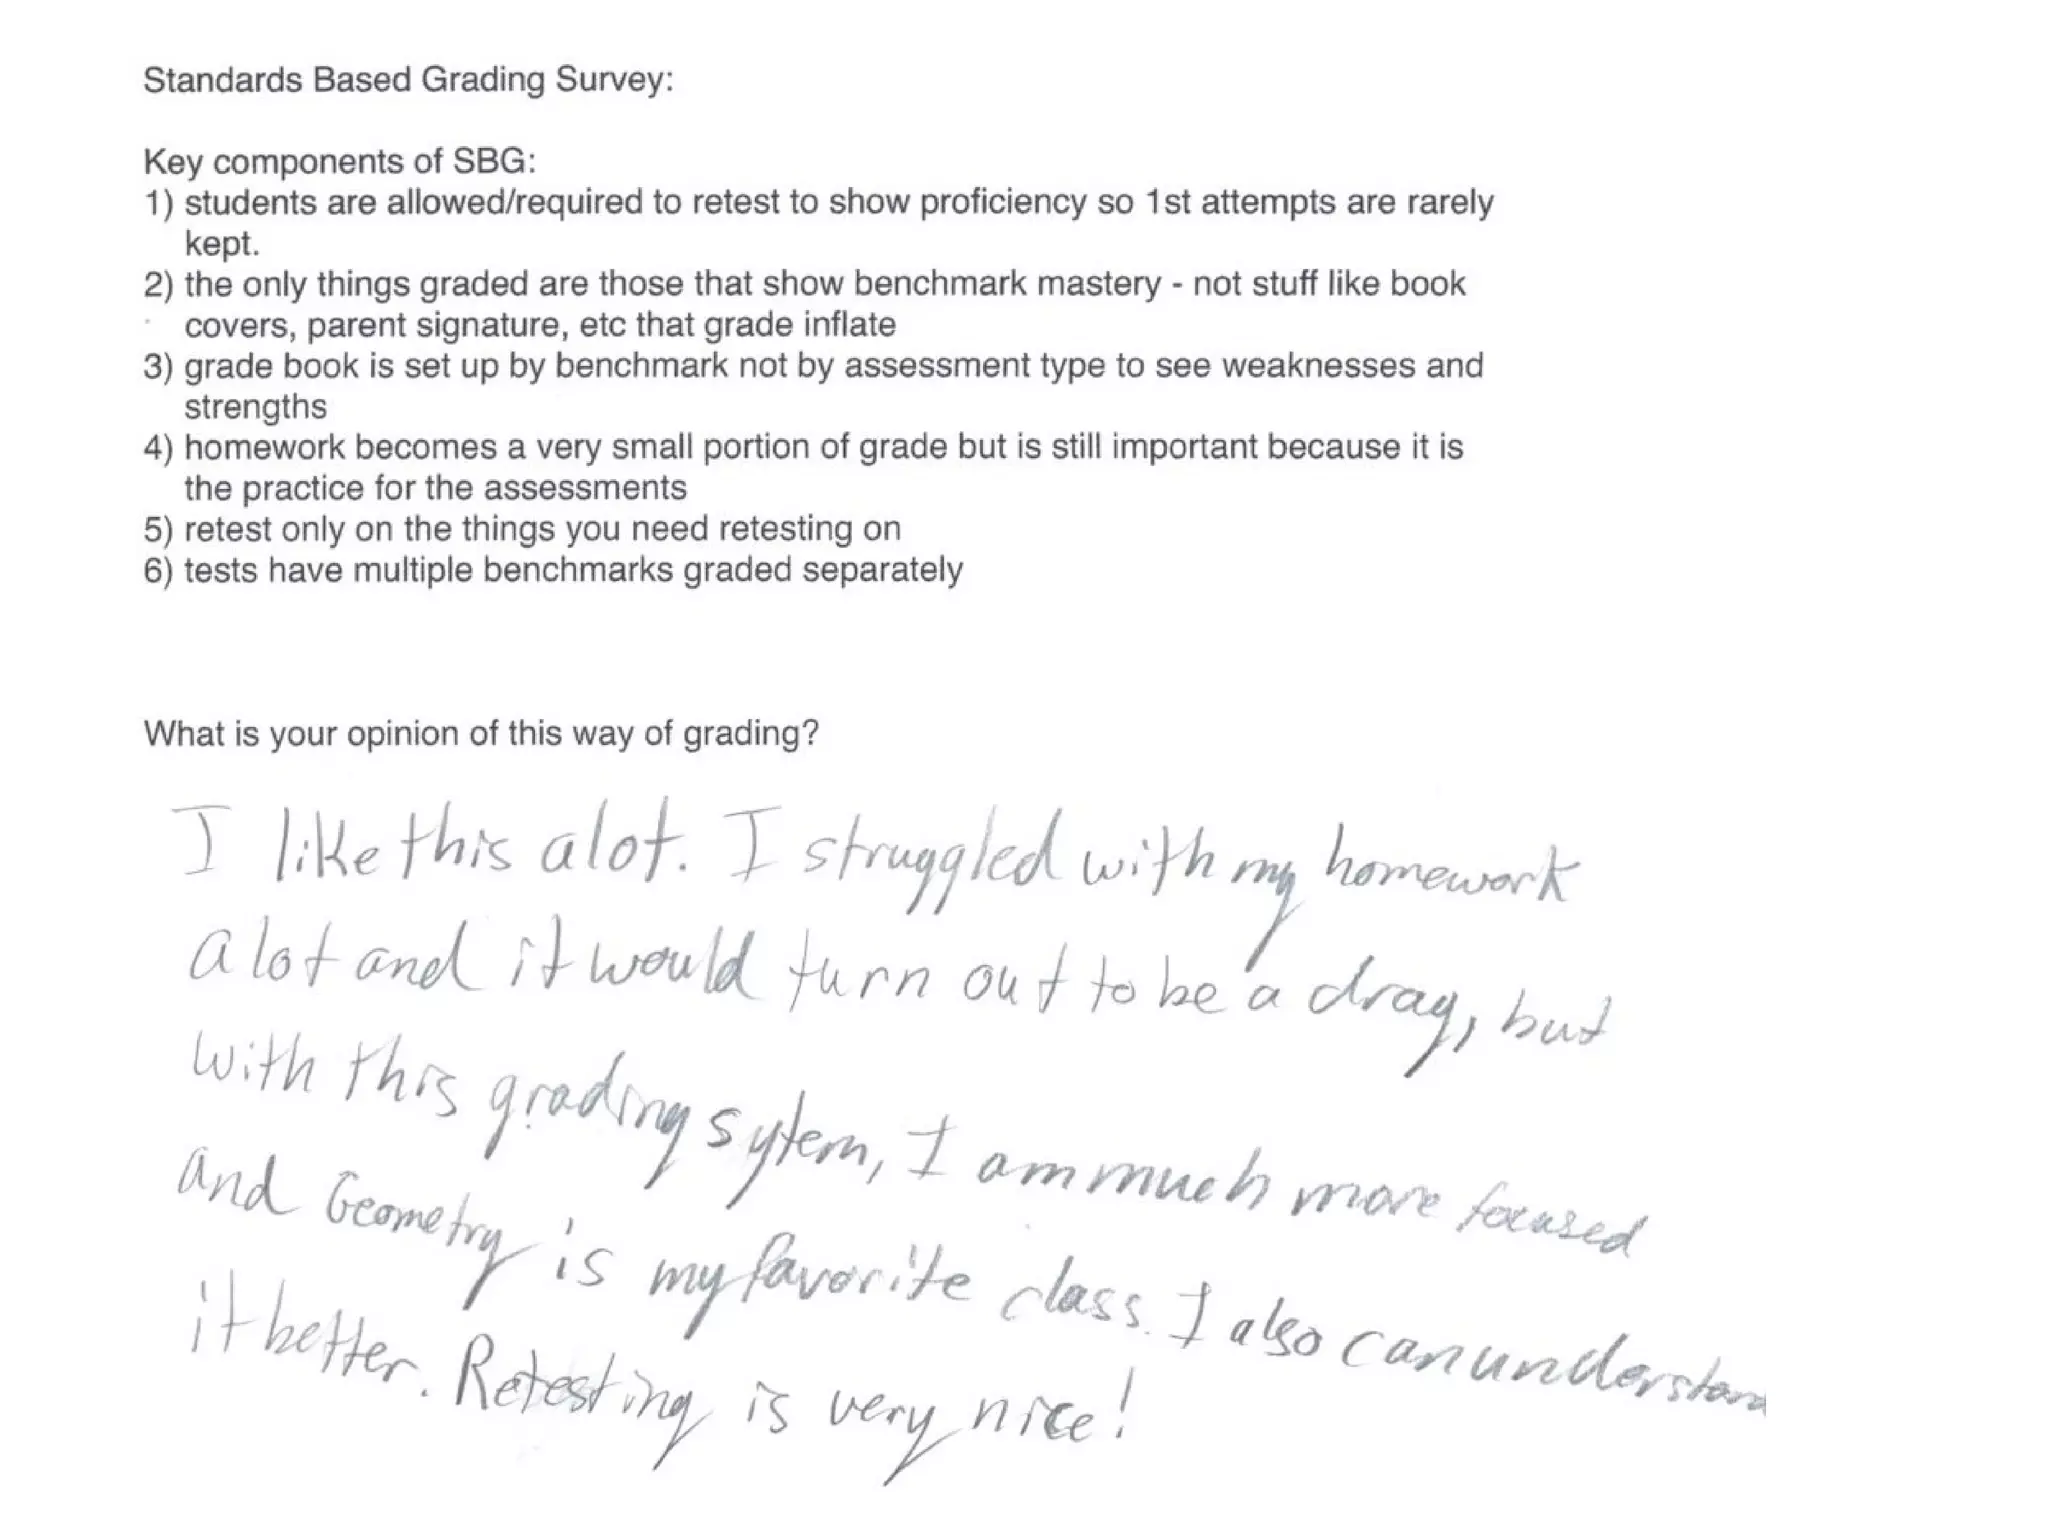 Standards Based Grading Survey:
Key components of SBG:
1) students are allowed/required to retest to show proficiency so 1st attempts are rarely
kept.
2) the only things graded are those that show benchmark mastery - not stuff like book
covers, parent signature, etc that grade inflate
3) grade book is set up by benchmark not by assessment type to see weaknesses and
strengths
4) homework becomes a very small portion of grade but is still important because it is
the practice for the assessments
5) retest only on the things you need retesting on
6) tests have multiple benchmarks graded separately
What is your opinion of this way of grading?
I like this alot. I struggled with my homework
alot and it would turn out to be a drag, but
with this grading sytem, I am much more focused
and Geometry is my favorite class. I also can understan
it better. Retesting is very nice!